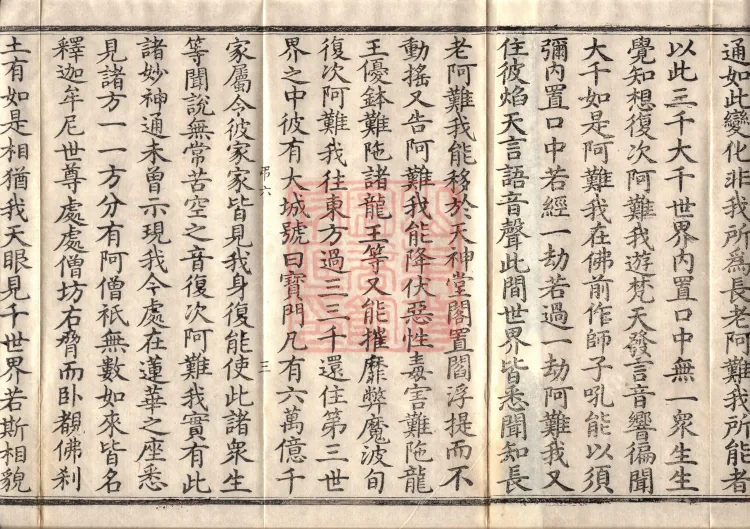 通如此變化非我所為長老阿難我所能者
以此三千大千世界內置口中無一衆生生
覺知想復次阿難我遊梵天發言音響徧聞
大千如是阿難我在佛前作師子吼能以須
彌內置口中若經一劫若過一劫阿難我又
住彼焰天言語音聲此間世界皆悉聞知長
老阿難我能移於天神堂閣置閻浮提而不
動搖又告阿難我能降伏惡性毒害難陁龍
王優鉢難陁諸龍王等又能摧靡弊魔波旬
復次阿難我往東方過三三千還住第三世
界之中彼有大城號曰寶門凡有六萬億千
弔六
三
家屬令彼家家皆見我身復能使此諸衆生
等聞說無常苦空之音復次阿難我實有此
諸妙神通未曾示現我今處在蓮華之座悉
見諸方一一方分有阿僧祇無數如來皆名
釋迦牟尼世尊處處僧坊右脅而卧覩佛刹
土有如是相猶我天眼見千世界若斯相貌